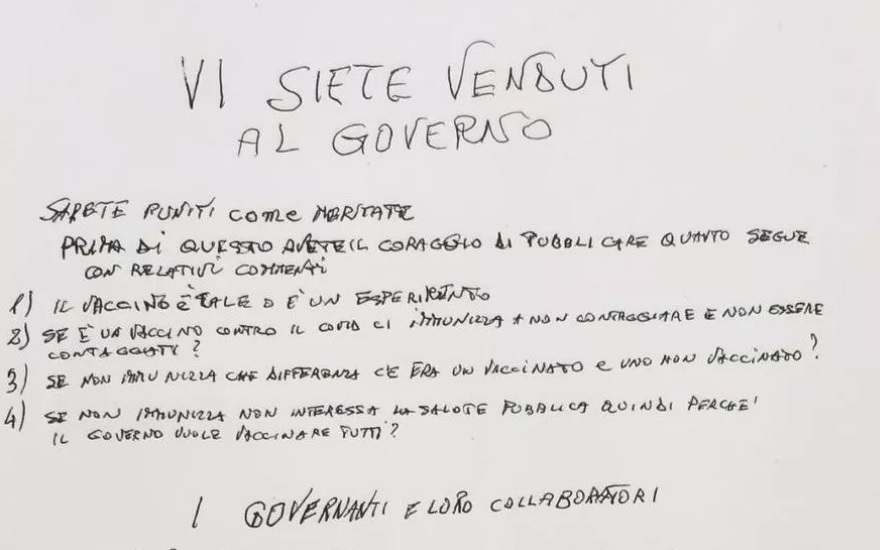 VI SIETE VENDUTI
AL GOVERNO
SARETE PUNITI COME MERITATE
PRIMA DI QUESTO AVETE IL CORAGGIO DI PUBBLICARE QUANTO SEGUE
CON RELATIVI COMMENTI
1) IL VACCINO È TALE O E' UN ESPERIMENTO
2) SE È UN VACCINO CONTRO IL COVID CI IMMUNIZZA A NON CONTAGGIARE E NON ESSERE
CONTAGGIATI?
3) SE NON IMMUNIZZA CHE DIFFERENZA C'E FRA UN VACCINATO E UNO NON VACCINATO?
4) SE NON IMMUNIZZA NON INTERESSA LA SALUTE PUBBLICA QUINDI PERCHE'
IL GOVERNO VUOLE VACCINARE TUTTI?
I GOVERNANTI E LORO COLLABORATORI